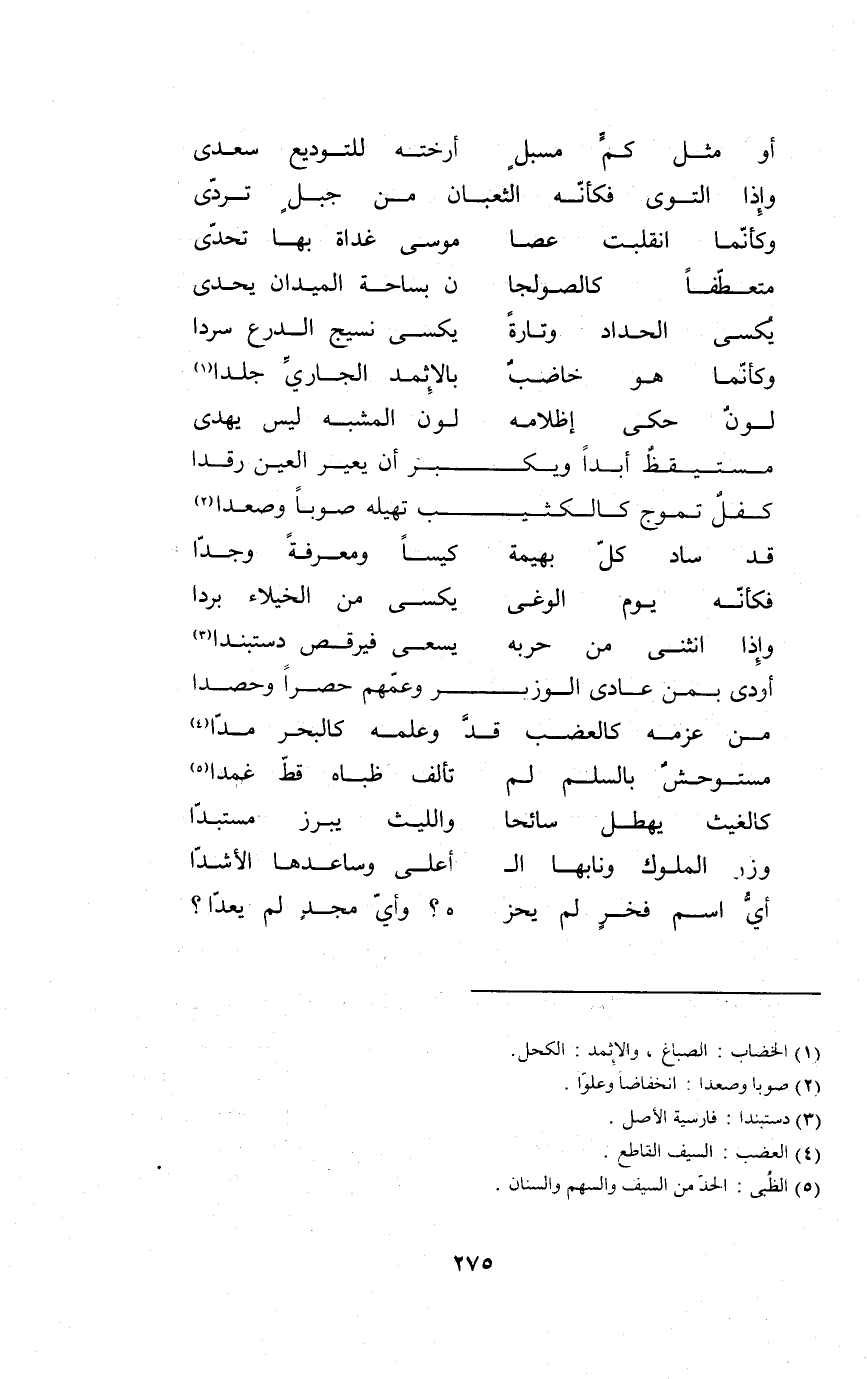 أو مثل كمٍّ مسبلٍ أرخته للتوديع سعدى
وإِذا التوى فكأنّه الثعبان من جبلٍ تردّى
وكأنّما انقلبت عصا موسى غداة بها تحدّى
متعطّفاً كالصولجا ن بساحة الميدان يحدى
يُكسى الحداد وتارةً يكسى نسيج الدرع سردا
وكأنّما هو خاضبٌ بالإِثمد الجاريِّ جلدا(١)
لونٌ حكى إظلامه لون المشبه ليس يهدى
مستيقظٌ أبداً ويكبر أن يعير العين رقدا
كفلٌ تموج كالكثيب تهيله صوباً وصعدا(٢)
قد ساد كلّ بهيمة كيساً ومعرفةً وجدّا
فكأنّه يوم الوغى يكسى من الخيلاء بردا
وإِذا انثنى من حربه يسعى فيرقص دستبندا(٣)
أردى بمن عادى الوزير وعمّهم حصراً وحصدا
من عزمه كالعضب قدَّ وعلمه كالبحر مدّا(٤)
مستوحشٌ بالسلم لم تألف ظباه قطّ غمدا(٥)
كالغيث يهطل سائحا والليث يبرز مستبدّا
وزر الملوك ونابها الـ أعلى وساعدها الأشدّا
أيُّ اسم فخرٍ لم يحز ه؟ وأيّ مجدٍ لم يعدّا؟
(١) الخضاب : الصباغ ، والإِثمد : الكحل.
(٢) صوبا وصعدا : انخفاضا وعلوّا .
(٣) دستبندا : فارسية الأصل .
(٤) العضب : السيف القاطع .
(٥) الظُبى : الحدّ من السيف والسهم والسنان .
٢٧٥